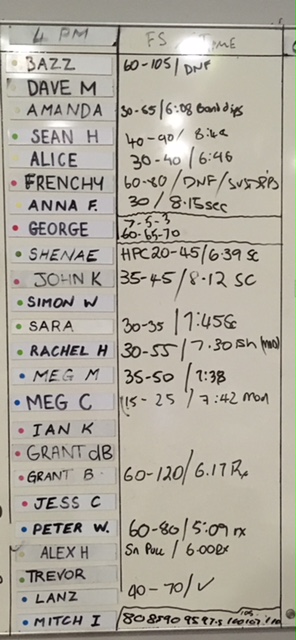 4 PM FS / TIME
BAZZ 60-105 / DNF
DAVE M
AMANDA 30-55 / 6:08 Band dips
SEAN H 40-90 /
ALICE 30-40 / 6:46
FRENCHY 60-80 / DNF /
ANNA F. 30 / 8.15sec
GEORGE 7-5-3
60-65-70
SHENAE HPC 20-45 / 6.39 SC
JOHN K 35-45 / 8.12 SC
SIMON W
SARA 30-35 / 7:45 Sc
RACHEL H 30-55 / 7.30
MEG M 35-50 / 7:38
MEG C 15-25 / 7:42 mod
IAN K
GRANT dB
GRANT B 60-120 / 6.17 Rx
JESS C
PETER W. 60-80 / 5:09 rx
ALEX H Sn Pull / 6.00 Rx
TREVOR
LANZ 40-70 / ✓
MITCH I 80 85 90 95 97.5